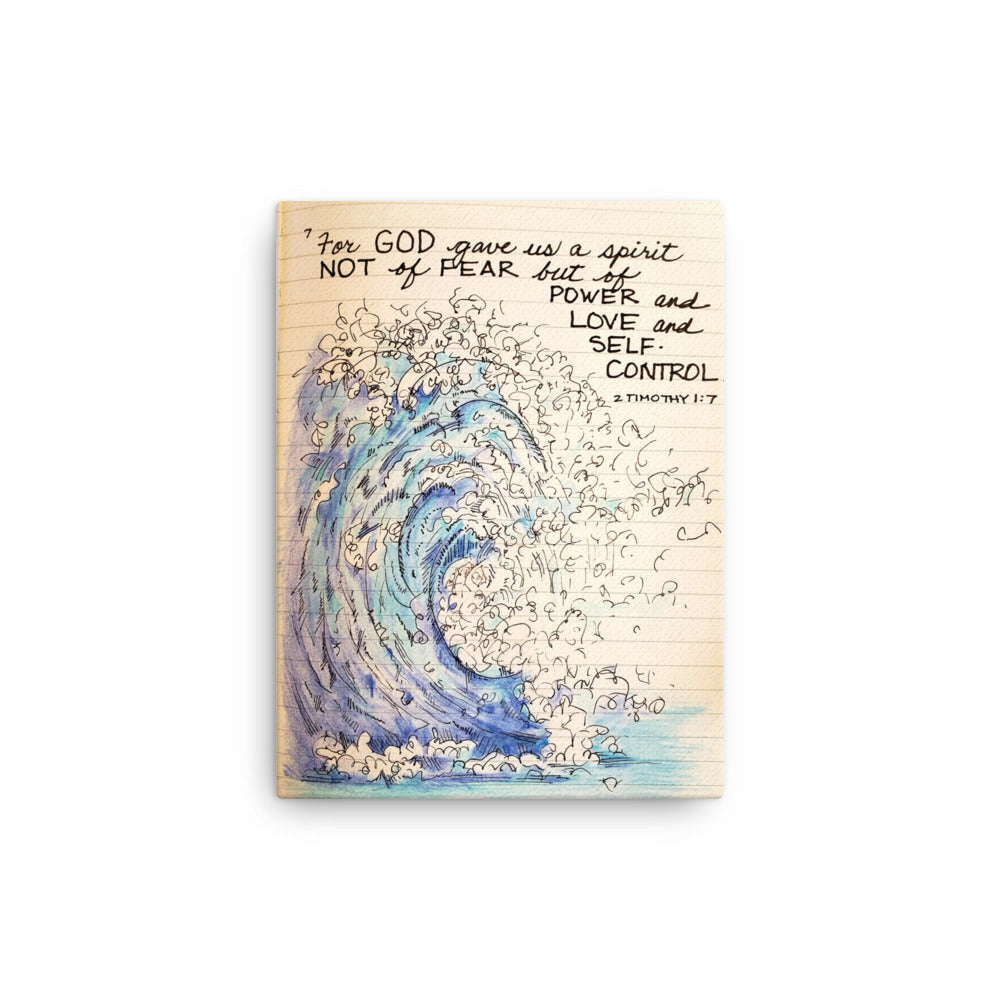 7 For GOD gave us a spirit
NOT of FEAR but of
POWER and
LOVE and
SELF-
CONTROL.
2 TIMOTHY 1:7